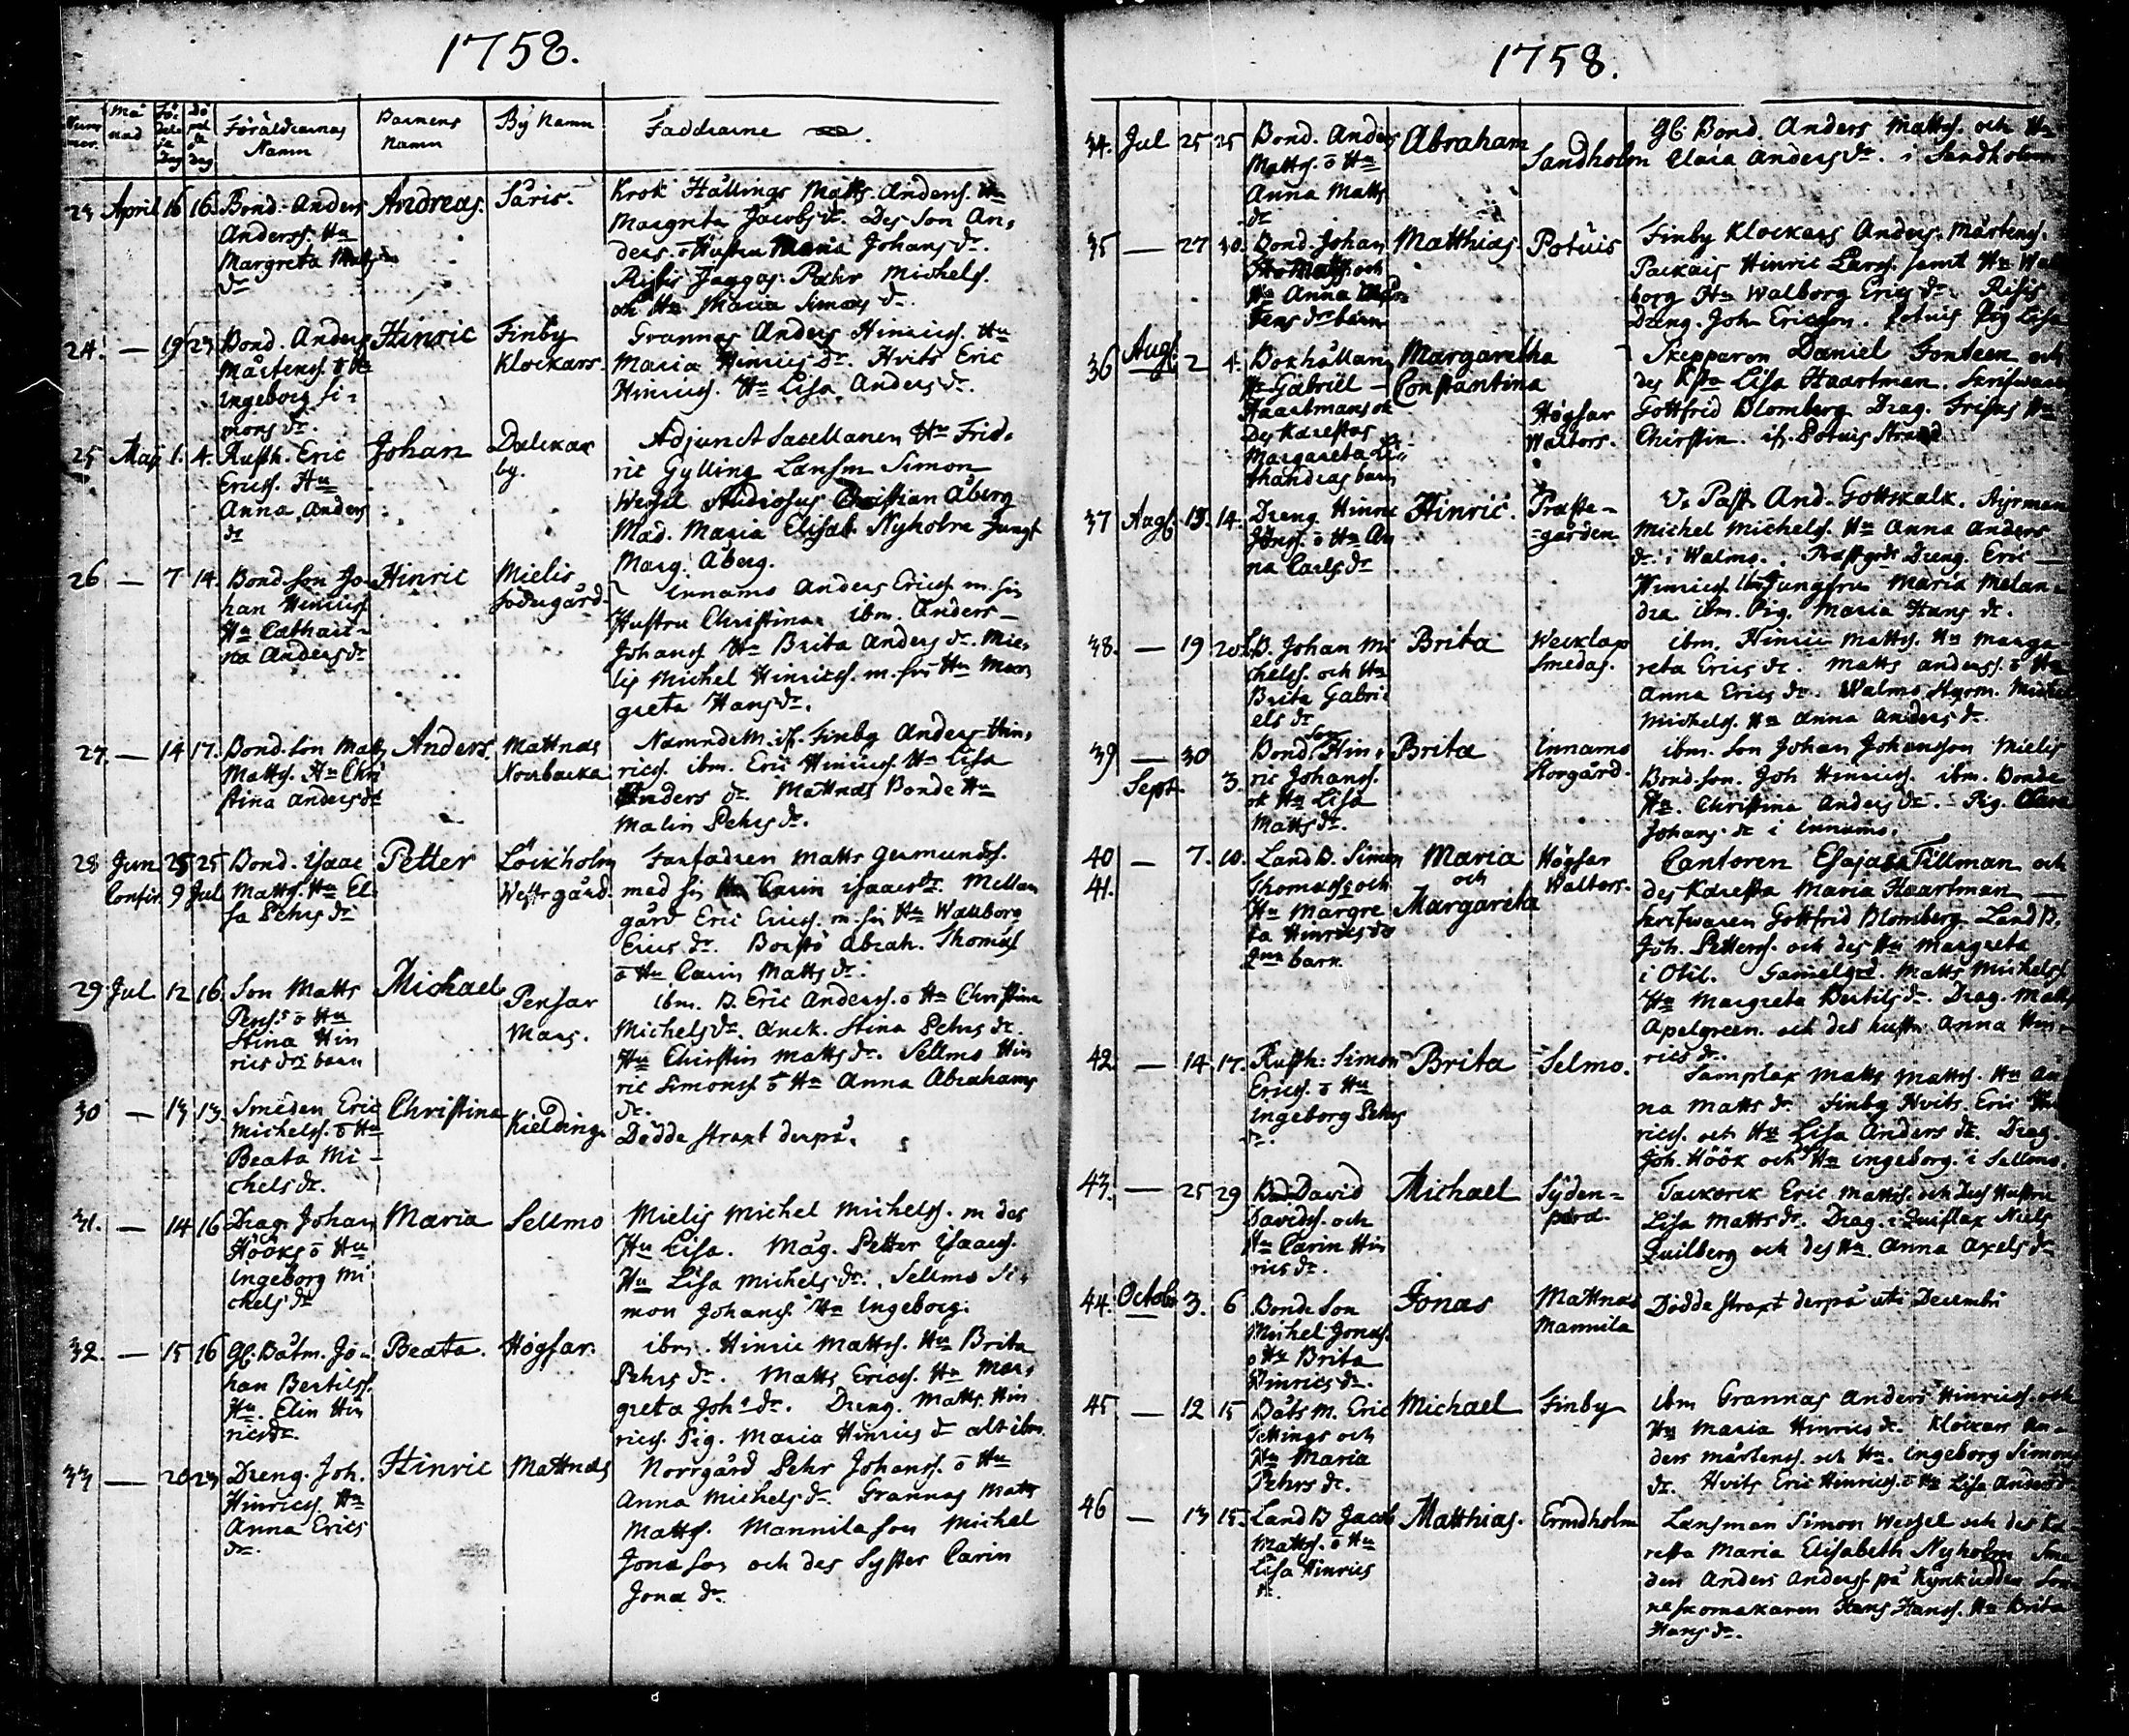 1758.
Num̄er.
Månad
Födelse Dag
Döpelse dag
Föräldrarnas Namn
Barnens Namn
By Namn
Faddrarne
23 April 16 16. Bond. Anders Anderss. Hu Margreta Matts dr
Andreas.
Säris.
Krok Hällings Matts Anderss. Hu
Margreta Jacobs dr. Des Son An,
ders. o Hustru Maria Johans dr.
Risis Jaggas. Pehr Michels.
och Hu Maria Simons dr
24. — 19 23 Bond. Anders Mårtenss. o Hu Ingeborg Simons dr.
Hinric
Finby Klockars
Grannas Anders Hinricss. Hu
Maria Hinrics dr. Hvits Eric
Hinricss. Hu Lisa Anders dr.
25 Maij 1. 4. Rusth. Eric Ericss. Hu Anna Anders dr
Johan
Dalkar by.
Adjunct Sacellanen Hr Frid.
ric Gylling Länsm Simon
Wessel Studiosus Christian Åberg
Mad. Maria Elisab. Nyholm Jungf
Marg. Åberg.
26 — 7 14. Bond. Son Johan Hinricss. Hu Catharina Anders dr
Hinric
Mielis Södergård.
Innamo Anders Ericss m. sin
Hustru Christina. ibm. Anders
Johanss Hu Brita Anders dr. Mie,
lis Michel Hinricss. m. sin Hu Mar
greta Hans dr.
27. — 14 17. Bond. Son Matts Mattss. Hu Christina Anders dr
Anders.
Mattnäs Norrbacka
Nämndem. if. Finby Anders Hin,
ricss. ibm. Eric Hinricss. Hu Lisa
Anders dr. Mattnäs Bonde Hu
Malin Pehrs dr.
28 Jun 25 25
Confir. 9 Jul
Bond. Isaac Mattss. Hu Elsa Pehrs dr
Petter
Löckholm Westrgård.
Farfadren Matts Germundss.
med sin Hu Carin Isaacs dr. Mellan
gård Eric Ericss. m. sin Hu Walborg
Erics dr. Borstö Abrah. Thomæss
o Hu Carin Matts dr.
29 Jul 12 16. Son Matts Perss. o Hu Stina Hinrics drs barn
Michael
Pensar Mans.
ibm. B. Eric Anderss. o Hu Christina
Michels dr. Änck. Stina Pehrs dr.
Hu Christin Matts dr. Sellmo Hin
ric Simonss o Hu Anna Abrahams
dr.
30 — 13 13. Smeden Eric Michelss. o Hu Beata Michels dr.
Christina
Kielding.
Dödde straxt derpå.
31. — 14 16 Drag. Johan Hööks o Hu Ingeborg Michels dr
Maria
Sellmo
Mielis Michel Michelss. m des
Hu Lisa. Måg. Petter Isaacs.
Hu Lisa Michels dr. Sellmo Si,
mon Johanss Hu Ingeborg.
32. — 15 16 Gl. Båtm. Johan Bertilss. Hu. Elin Hinrics dr.
Beata.
Högsar.
ibm. Hinric Mattss. Hu Brita
Pehrs dr. Matts Ericss. Hu Mar,
greta Joh:s dr. Dreng. Matts Hin
ricss. Pig. Maria Hinrics dr alt ibm.
33 — 20 23 Dreng. Joh. Hinricss. Hu Anna Erics dr.
Hinric
Mattnäs
Norrgård Pehr Johanss. o Hu
Anna Michels dr. Grannas Matts
Mattss. Mannila son Michel
Jona son och des Syster Carin
Jona dr.
1758.
34. Jul 25 25 Bond. Anders Mattss. o Hu Anna Matts dr
Abraham
Sandholm
Gl. Bond. Anders Mattss. och Hu
Clara Anders dr. i Sandholm
35 — 27 30. Bond. Johan Mattss och Hu Anna Mårtens drs barn
Matthias
Potuis
Finby Klockars Anders Mårtenss.
Packais Hinric Larss. samt Hu Wal
borg Hu Walborg Erics dr. Risis
Dreng. Joh. Ericsson. Potuis Pig Lisa
36 Aug. 2 4. Bokhållaren Hr Gabriel Haartmans och Des Kärestas Margareta barn
Margaretha Constantina
Högsar Walters.
Skepparen Daniel Fonteen och
des Ksta Lisa Haartman. Skrifwaren
Gottfrid Blomberg Drag. Frisks Hu
Christin. if. Potuis Strand
37 Aug. 13. 14. Dreng. Hinric Jönss. o Hu Anna Carls dr
Hinric.
Præste-gården
V. Past. And. Gottskalk. Styrman
Michel Michelss. Hu Anna Anders
dr. i Walmo. Præstgrds Dreng. Eric
Hinricss. ibm Jungfru Maria Melan,
dra ibm. Pig. Maria Hans dr.
38. — 19 20 B. Johan Michelss. och Hu Brita Gabriels dr
Brita
Wecklax Smedas.
ibm. Hinric Mattss. Hu Marga
reta Erics dr. Matts Anderss. o Hu
Anna Erics dr. Walmo Styrm. Michel
Michelss. Hu Anna Anders dr.
39 — 30
Sept. 3.
Bond. Son Hinric Johanss. ok Hu Lisa Matts dr.
Brita
Innamo Storgård.
ibm. Son Johan Johansson Mielis
Bond. son. Joh Hinricss. ibm. Bonde
Hu. Christina Anders dr. Pig. Clara
Johans dr i Innamo.
40 — 7. 10.
41.
Land B. Simon Thomass och Hu Margreta Hinrics drs barn.
Maria och Margareta
Högsar Walters.
Cantoren Esajas Tillman och
des Käresta Maria Haartman
Skrifwaren Gottfrid Blomberg Land B.
Joh. Petterss. och des Hu Margreta
i Otil. Gamelgrd. Matts Michelss
Hu Margreta Bertils dr. Drag. Matts
Apelgreen. och des hustru Anna Hin,
rics dr.
42 — 14 17. Rusth: Simon Ericss. o Hu Ingeborg Pehrs dr.
Brita
Selmo.
Samplax Matts Mattss. Hu An
na Matts dr. Finby Hvits Eric Hin
ricss. och Hu Lisa Anders dr. Drag.
Joh. Höök och Hu Ingeborg. i Sellmo.
43. — 25 29 David Davidss. och Hu Carin Hinrics dr.
Michael
Syden=pera.
Tackork Eric Mattss. och Des Hustru
Lisa Matts dr. Drag. Qvislax Niels
Quilberg och des Hu. Anna Axels dr
44. Octob. 3. 6 Bonde Son Michel Jonæss. o Hu Brita Hinrics dr.
Jonas
Mattnäs Mannila
Dödde straxt derpå uti Decembri
45 — 12 15 Båts M. Eric Settings och Hu Maria Pehrs dr.
Michael
Finby
ibm Grannas Anders Hinricss. och
Hu Maria Hinrics dr. Klockars An-
ders Mårtenss. och Hu. Ingeborg Simons
dr. Hvits Eric Hinricss. o Hu Lisa Anders dr
46 — 13 15. Land B Jacob Mattss. o Hu Lisa Hinrics dr.
Matthias.
Ermdholm
Länsman Simon Wessel och des Kä
resta Maria Elisabeth Nyholm Sme
den Anders Anderss. på Kyrkudden
skomakaren Hans Hanss. Hu Brita
Hans dr.